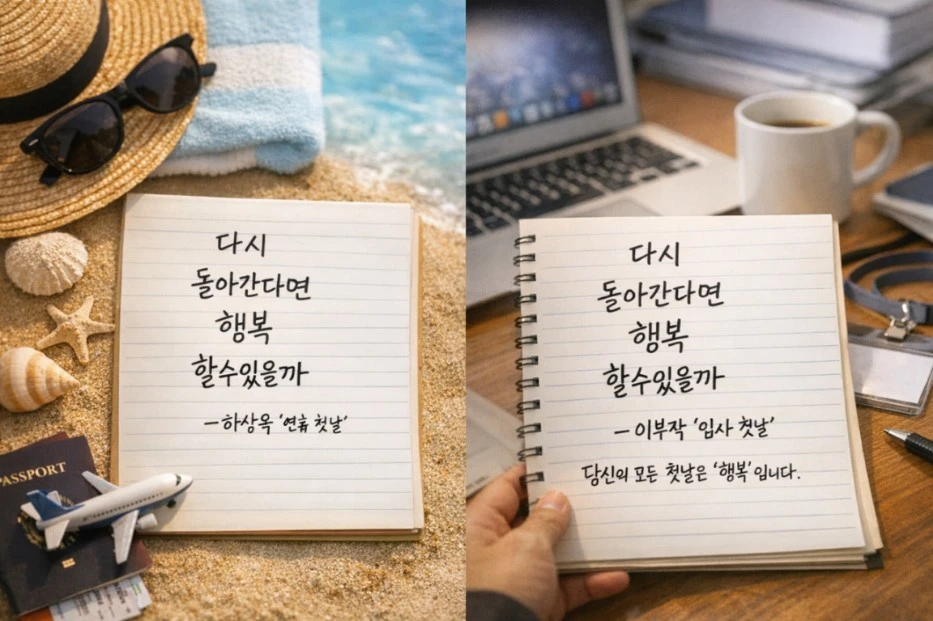 다시
돌아간다면
행복
할수있을까
–하상옥 '연휴 첫날'
PASSPORT
다시
돌아간다면
행복
할수있을까
– 이부작 '입사 첫날'
당신의 모든 첫날은 '행복'입니다.